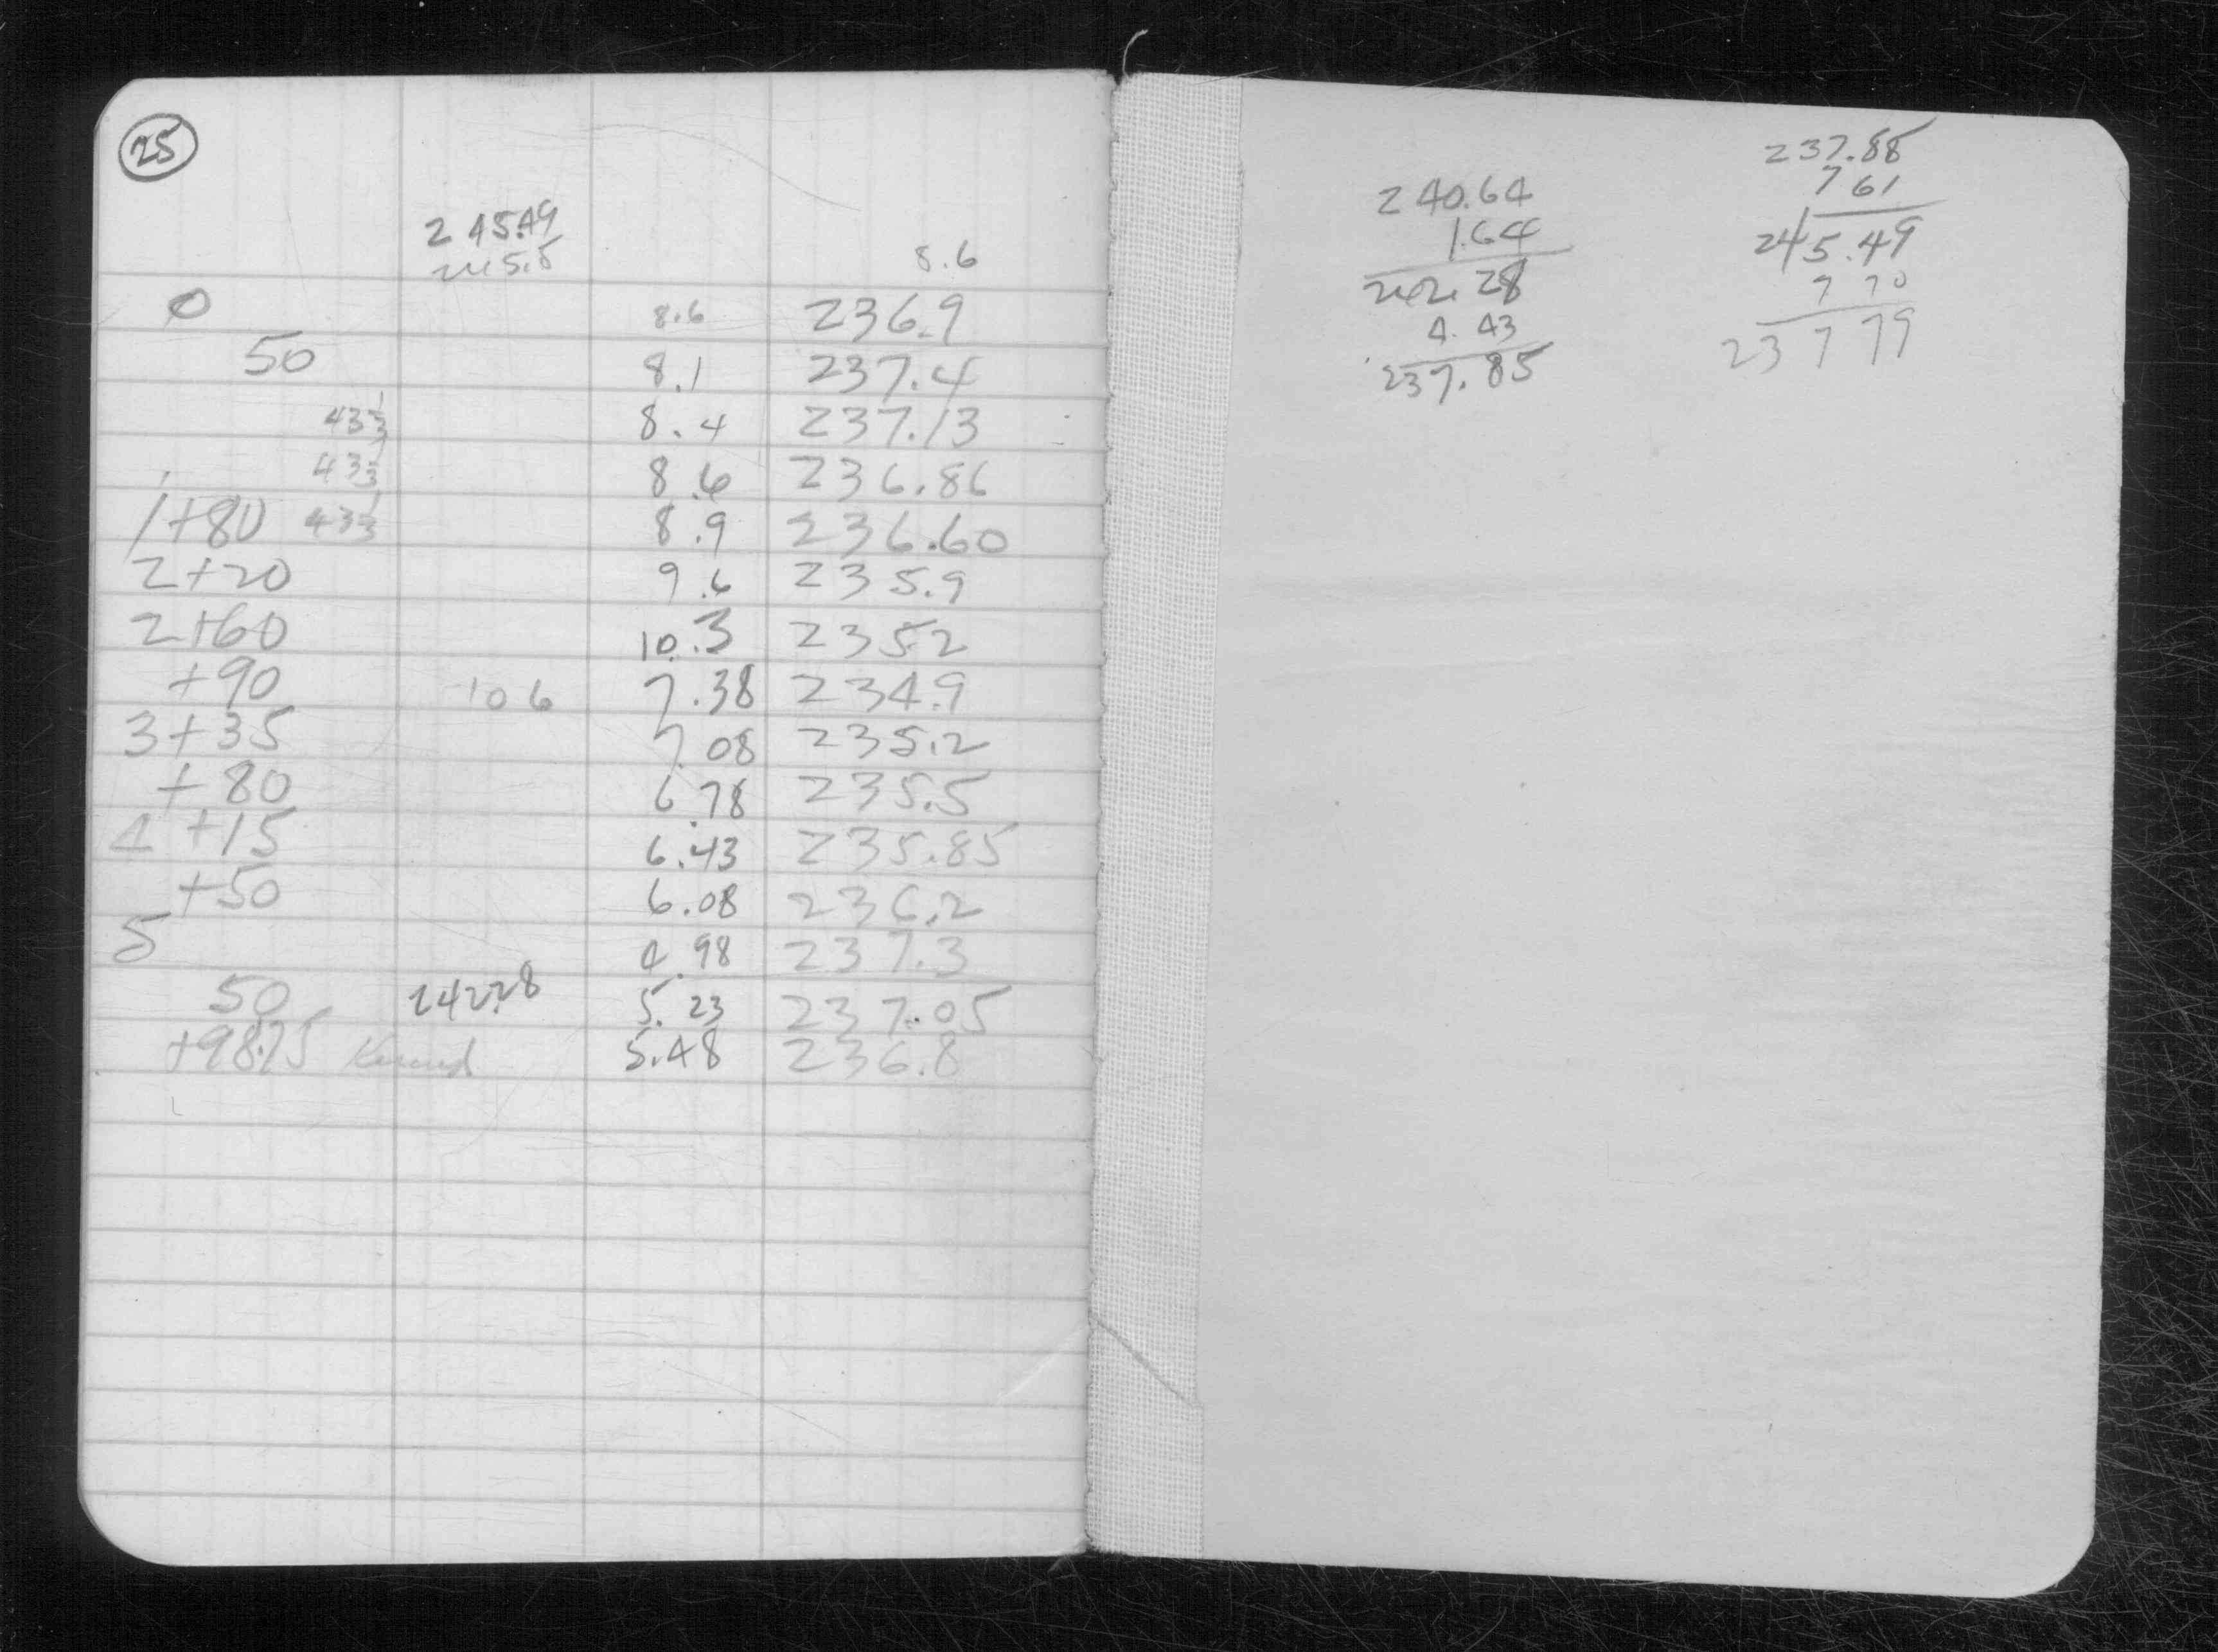 25
245.49
245.5
8.6
0 8.6 236.9
50 8.1 237.4
43 1/3 8.4 237.13
43 1/3 8.6 236.86
1+80 43 1/3 8.9 236.60
2+20 9.6 235.9
2+60 10.3 235.2
+90 10 6 7.38 234.9
3+35 7.08 235.2
+80 6.78 235.5
4+15 6.43 235.85
+50 6.08 236.2
5 4.98 237.3
50 242.28 5.23 237.05
+98.75 5.48 236.8
240.64
1.64
242.28
4.43
237.85
237.88
7 61
245.49
7 70
237 79